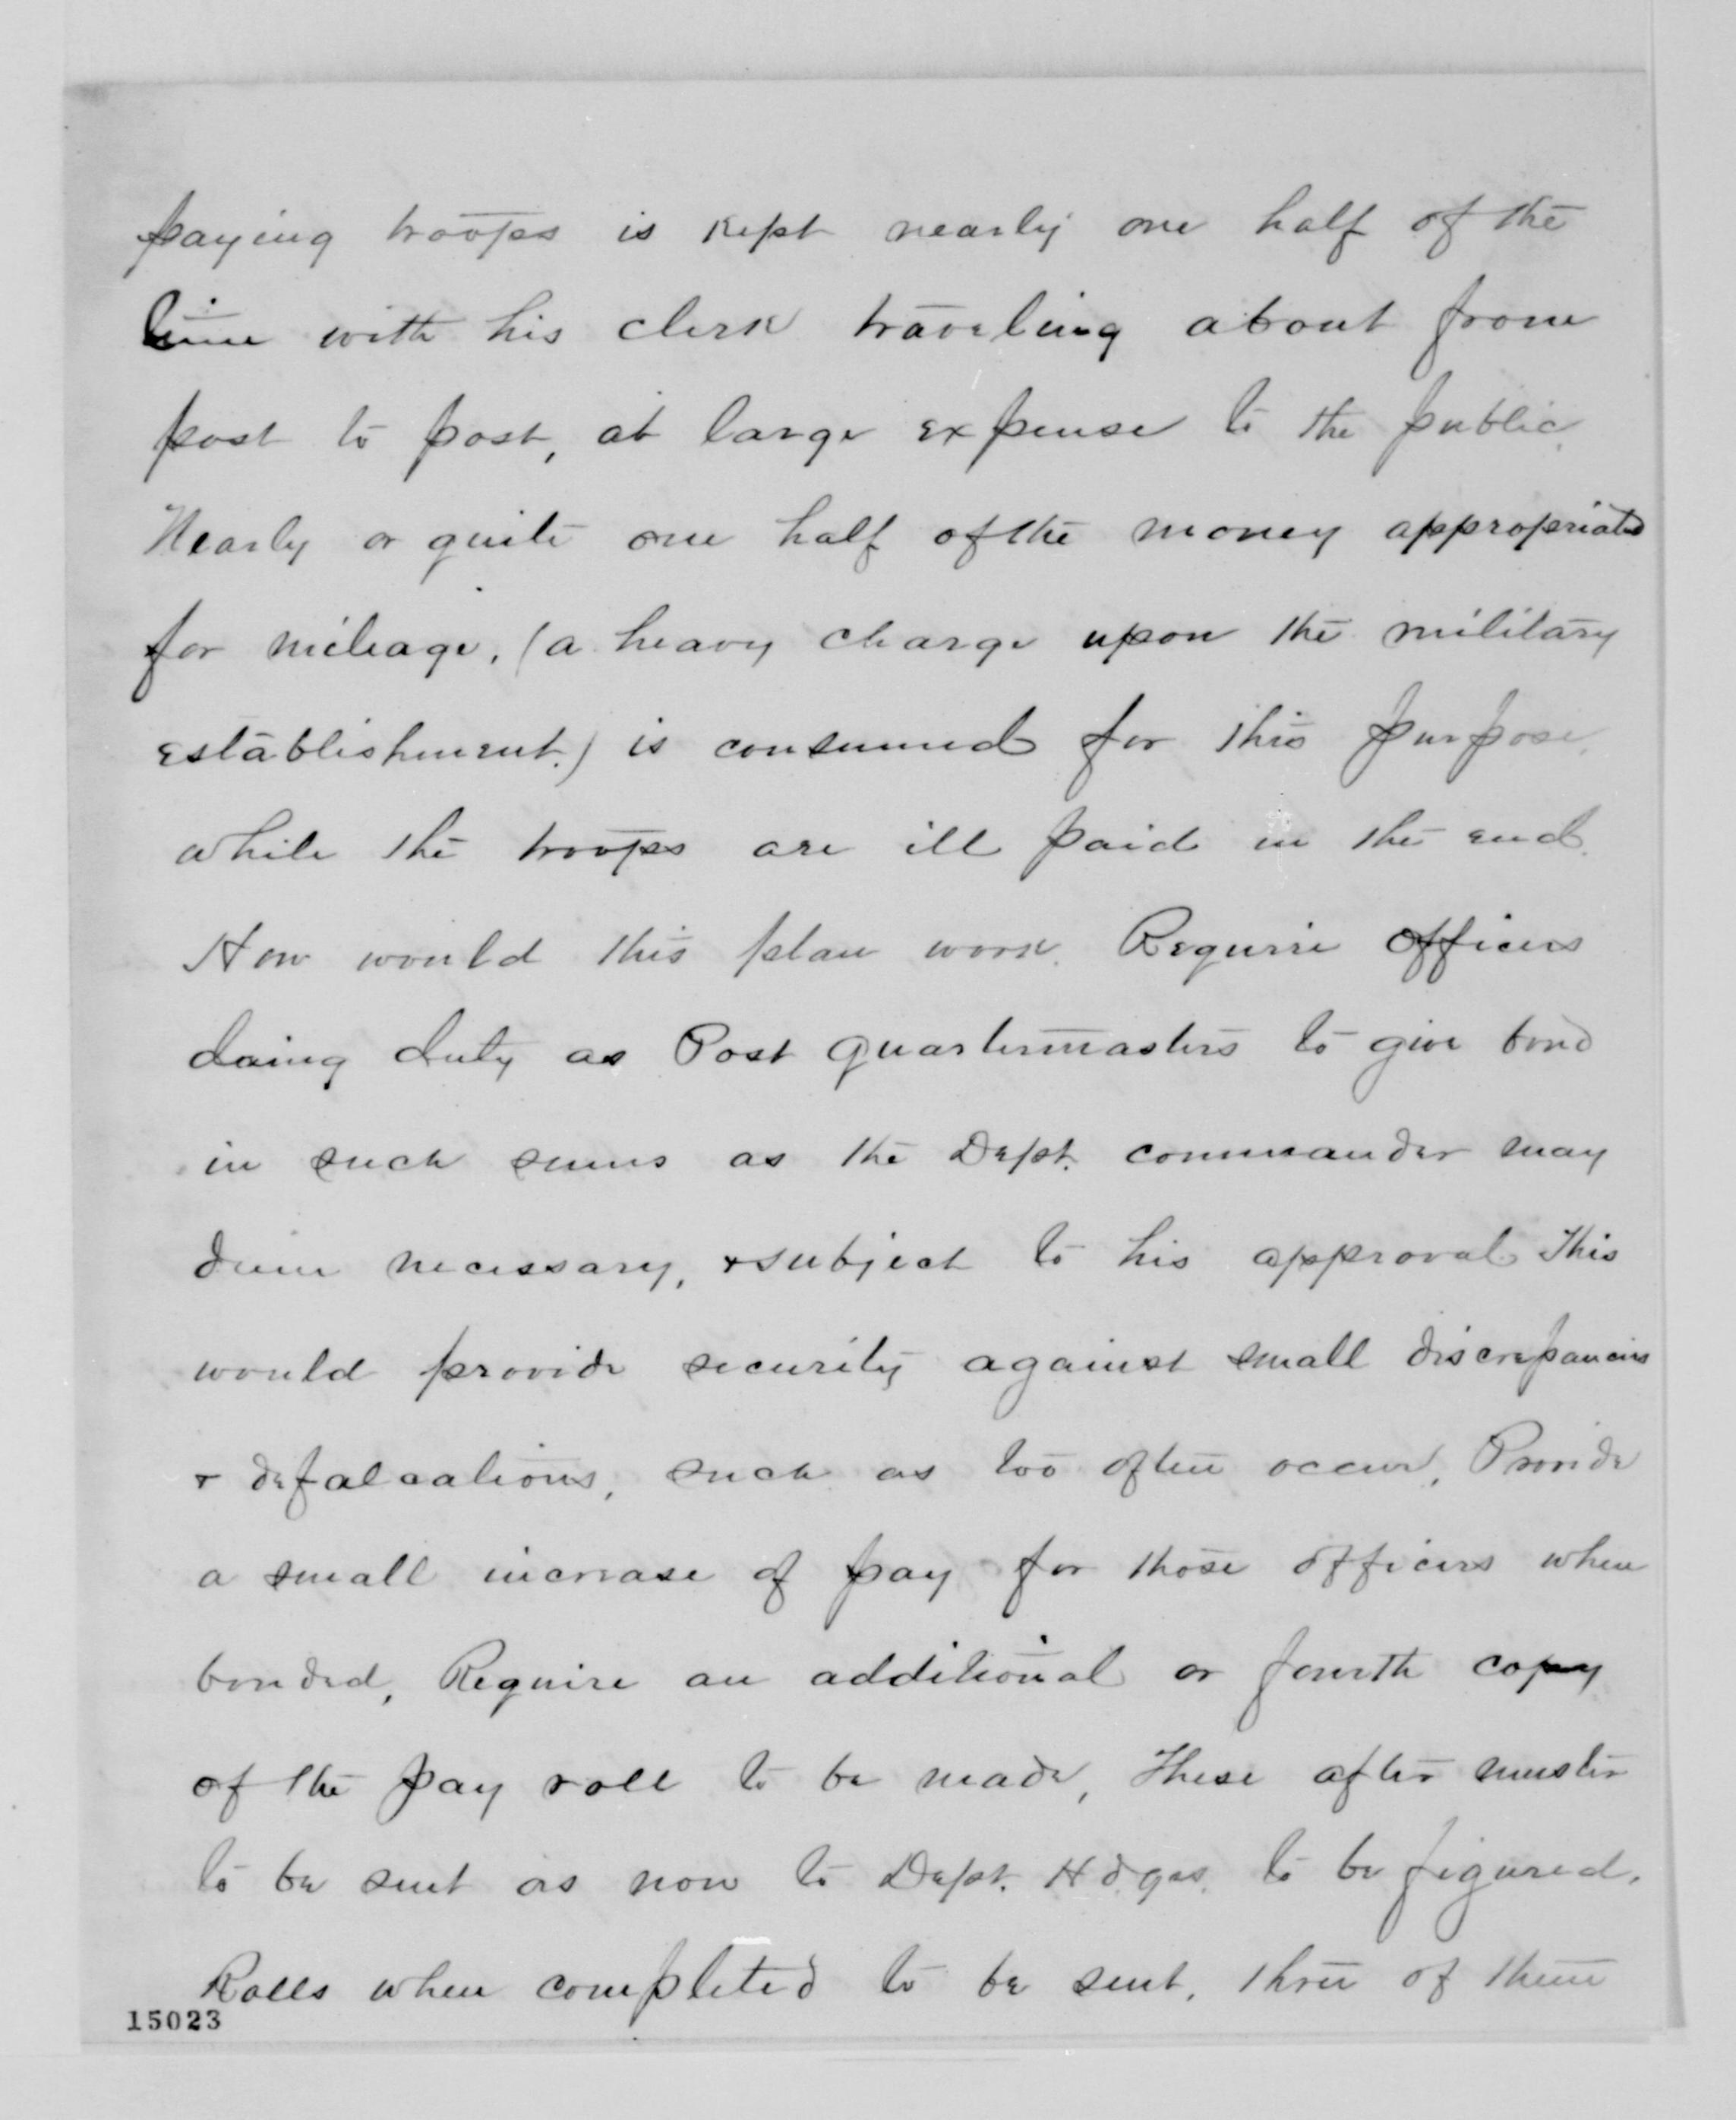 paying troops is kept nearly one half of the
time with his clerk traveling about from
post to post, at large expense to the public.
Nearly or quite one half of the money appropriated
for mileage, (a heavy charge upon the military
establishment.) is consumed for this purpose.
while the troops are ill paid in the end.
How would this plan work. Require officers
doing duty as Post quartermasters to give bond
in such sums as the Dept. commander may
deem necessary, & subject to his approval This
would provide security against small discrepancies
& defalcations, such as too often occur, Provide
a small increase of pay for those officers when
bonded, Require an additional or fourth copy
of the pay roll to be made, These after muster
to be sent as now to Dept. Hdqrs. to be figured.
Rolls when completed to be sent, three of them
15023